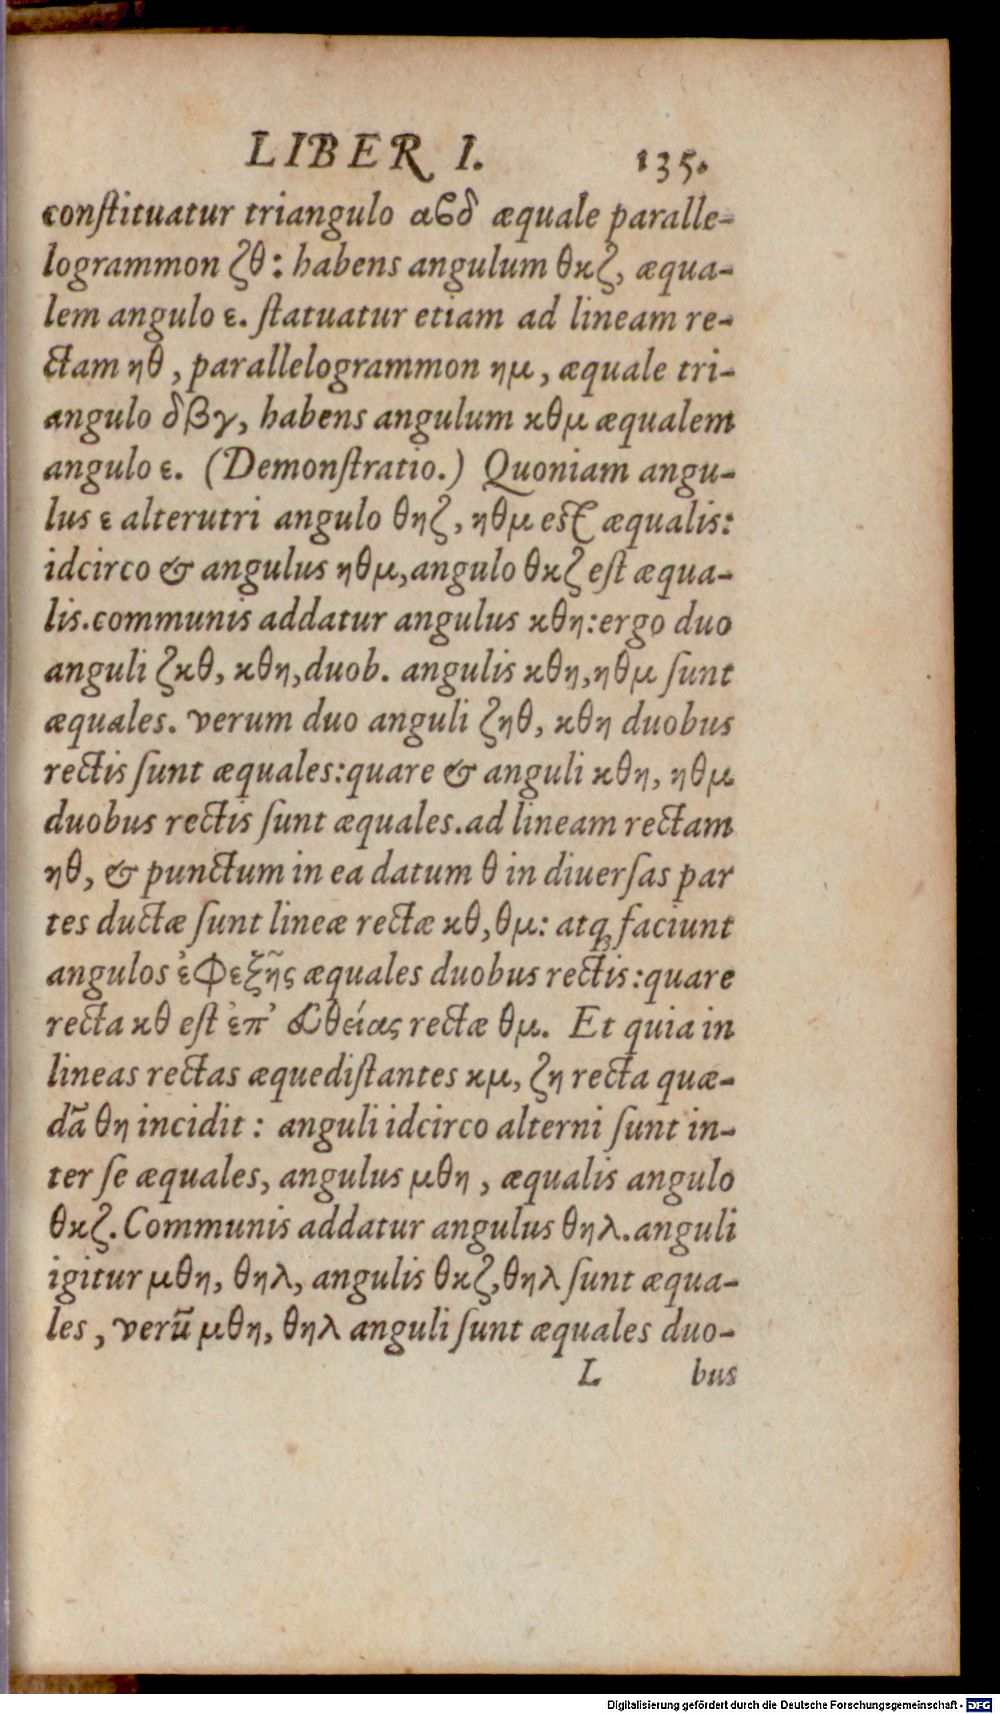 LIBER I. 135.
conſtituatur triangulo αϐδ æquale paralle-
logrammon ζθ: habens angulum θκζ, æqua-
lem angulo ε. ſtatuatur etiam ad lineam re-
ctam ηθ, parallelogrammon ημ, æquale tri-
angulo δβγ, habens angulum κθμ æqualem
angulo ε. (Demonſtratio.) Quoniam angu-
lus ε alterutri angulo θηζ, ηθμ eſt æqualis:
idcirco & angulus ηθμ, angulo θκζ eſt æqua-
lis. communis addatur angulus κθη: ergo duo
anguli ζκθ, κθη, duob. angulis κθη, ηθμ ſunt
æquales. verum duo anguli ζηθ, κθη duobus
rectis ſunt æquales: quare & anguli κθη, ηθμ
duobus rectis ſunt æquales. ad lineam rectam
ηθ, & punctum in ea datum θ in diuerſas par
tes ductæ ſunt lineæ rectæ κθ, θμ: atq; faciunt
angulos ἐφεξῆς æquales duobus rectis: quare
recta κθ eſt ἐπ' εὐθείας rectæ θμ. Et quia in
lineas rectas æquediſtantes κμ, ζη recta quæ-
dã θη incidit: anguli idcirco alterni ſunt in-
ter ſe æquales, angulus μθη, æqualis angulo
θκζ. Communis addatur angulus θηλ. anguli
igitur μθη, θηλ, angulis θκζ, θηλ ſunt æqua-
les, verũ μθη, θηλ anguli ſunt æquales duo-
L bus
Digitalisierung gefördert durch die Deutsche Forschungsgemeinschaft - DFG